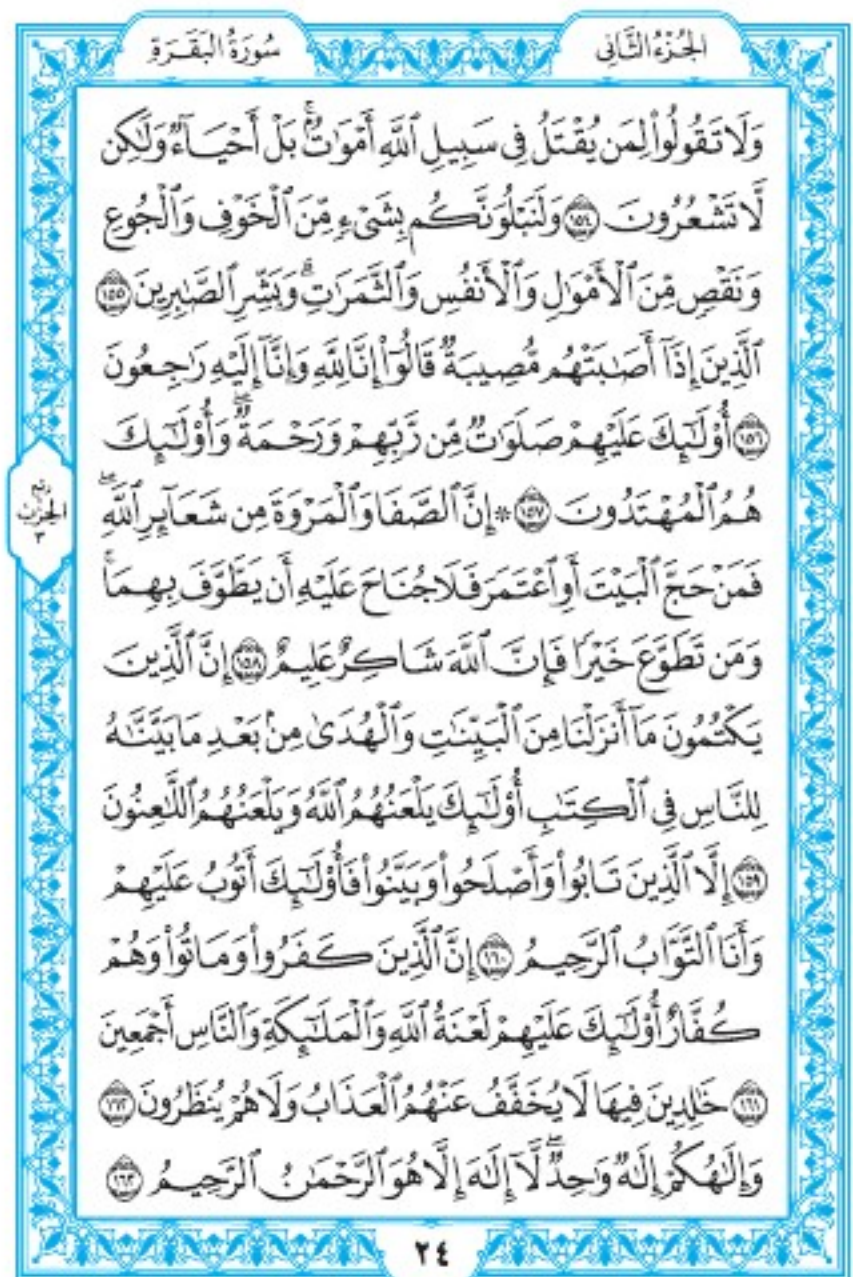 الجُزْءُ الثَّانِي
سُورَةُ البَقَـرَةِ
وَلَا تَقُولُوا۟ لِمَن يُقْتَلُ فِى سَبِيلِ ٱللَّهِ أَمْوَٰتٌۢ ۚ بَلْ أَحْيَآءٌ وَلَٰكِن
لَّا تَشْعُرُونَ ١٥٤ وَلَنَبْلُوَنَّكُم بِشَىْءٍ مِّنَ ٱلْخَوْفِ وَٱلْجُوعِ
وَنَقْصٍ مِّنَ ٱلْأَمْوَٰلِ وَٱلْأَنفُسِ وَٱلثَّمَرَٰتِ ۗ وَبَشِّرِ ٱلصَّٰبِرِينَ ١٥٥
ٱلَّذِينَ إِذَآ أَصَٰبَتْهُم مُّصِيبَةٌ قَالُوٓا۟ إِنَّا لِلَّهِ وَإِنَّآ إِلَيْهِ رَٰجِعُونَ
١٥٦ أُو۟لَٰٓئِكَ عَلَيْهِمْ صَلَوَٰتٌ مِّن رَّبِّهِمْ وَرَحْمَةٌ ۖ وَأُو۟لَٰٓئِكَ
هُمُ ٱلْمُهْتَدُونَ ١٥٧ * إِنَّ ٱلصَّفَا وَٱلْمَرْوَةَ مِن شَعَآئِرِ ٱللَّهِ ۖ
فَمَنْ حَجَّ ٱلْبَيْتَ أَوِ ٱعْتَمَرَ فَلَا جُنَاحَ عَلَيْهِ أَن يَطَّوَّفَ بِهِمَا ۚ
وَمَن تَطَوَّعَ خَيْرًا فَإِنَّ ٱللَّهَ شَاكِرٌ عَلِيمٌ ١٥٨ إِنَّ ٱلَّذِينَ
يَكْتُمُونَ مَآ أَنزَلْنَا مِنَ ٱلْبَيِّنَٰتِ وَٱلْهُدَىٰ مِنۢ بَعْدِ مَا بَيَّنَّٰهُ
لِلنَّاسِ فِى ٱلْكِتَٰبِ أُو۟لَٰٓئِكَ يَلْعَنُهُمُ ٱللَّهُ وَيَلْعَنُهُمُ ٱللَّٰعِنُونَ
١٥٩ إِلَّا ٱلَّذِينَ تَابُوا۟ وَأَصْلَحُوا۟ وَبَيَّنُوا۟ فَأُو۟لَٰٓئِكَ أَتُوبُ عَلَيْهِمْ
وَأَنَا ٱلتَّوَّابُ ٱلرَّحِيمُ ١٦٠ إِنَّ ٱلَّذِينَ كَفَرُوا۟ وَمَاتُوا۟ وَهُمْ
كُفَّارٌ أُو۟لَٰٓئِكَ عَلَيْهِمْ لَعْنَةُ ٱللَّهِ وَٱلْمَلَٰٓئِكَةِ وَٱلنَّاسِ أَجْمَعِينَ
١٦١ خَٰلِدِينَ فِيهَا لَا يُخَفَّفُ عَنْهُمُ ٱلْعَذَابُ وَلَا هُمْ يُنظَرُونَ ١٦٢
وَإِلَٰهُكُمْ إِلَٰهٌ وَٰحِدٌ ۖ لَّآ إِلَٰهَ إِلَّا هُوَ ٱلرَّحْمَٰنُ ٱلرَّحِيمُ ١٦٣
ربع
الحزب
٣
٢٤